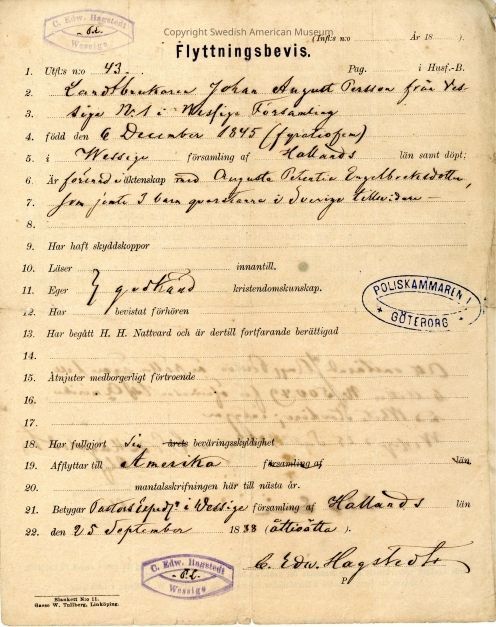 Copyright Swedish American Museum
C. Edw. Hagstedt
P. l.
Wessige
(Inflt: n:o År 18 ).
Flyttningsbevis.
1. Utflt: n:o 43. Pag. i Husf.-B.
2. Landtbrukaren Johan August Persson från Ves-
3. sige N:1 i Wessige Församling
4. född den 6 December 1845 (fyratiofem)
5. i Wessige församling af Hallands län samt döpt;
6. Är förenad i äktenskap med Augusta Petentia Engelbrektsdotter,
7. som jemte 3 barn qvarstanna i Sverige tillsvidare —
8.
9. Har haft skyddskoppor
10. Läser innantill.
11. Eger godkänd kristendomskunskap.
12. Har bevistat förhören
POLISKAMMAREN I
GÖTEBORG
13. Har begått H. H. Nattvard och är dertill fortfarande berättigad
14.
15. Åtnjuter medborgerligt förtroende
16.
17.
18. Har fullgjort sin årets beväringsskyldighet
19. Afflyttar till Amerika församling af län.
20. mantalsskrifningen här till nästa år.
21. Betygar Pastors Exped. i Wessige församling af Hallands län
22. den 25 September 1888 (åttioåtta).
C. Edw. Hagstedt
P
C. Edw. Hagstedt
P. l.
Wessige
Blankett N:o 11.
Gusse W. Tullberg, Linköping.